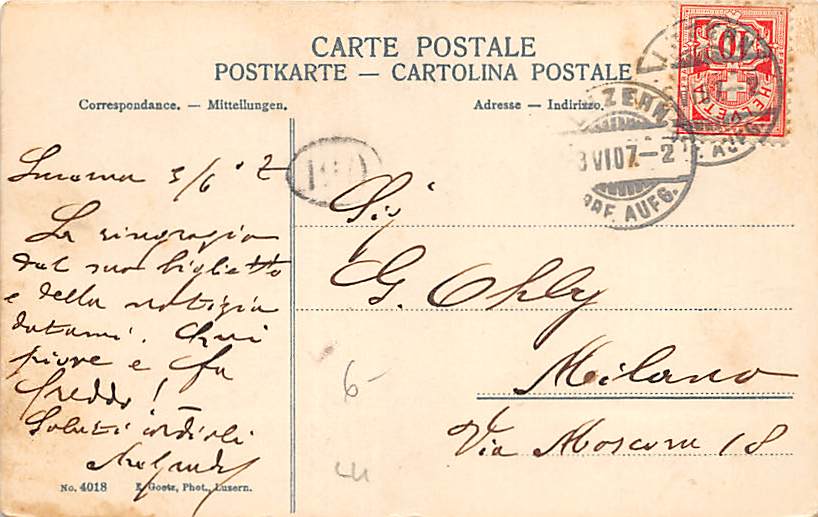 CARTE POSTALE
POSTKARTE — CARTOLINA POSTALE
Correspondance. — Mitteilungen.
Adresse — Indirizzo.
10
HELVETIA
LUZERN
3 VI 07.-2
BRF. AUFG.
AUFG.
191
Lucerna 3/6 07
La ringrazio
del suo biglietto
e della notizia
datami. Qui
piove e fa
freddo!
Saluti cordiali
Sig.
G. Ohly
Milano
Via Moscova 18
6-
No. 4018 E. Goetz, Phot., Luzern.